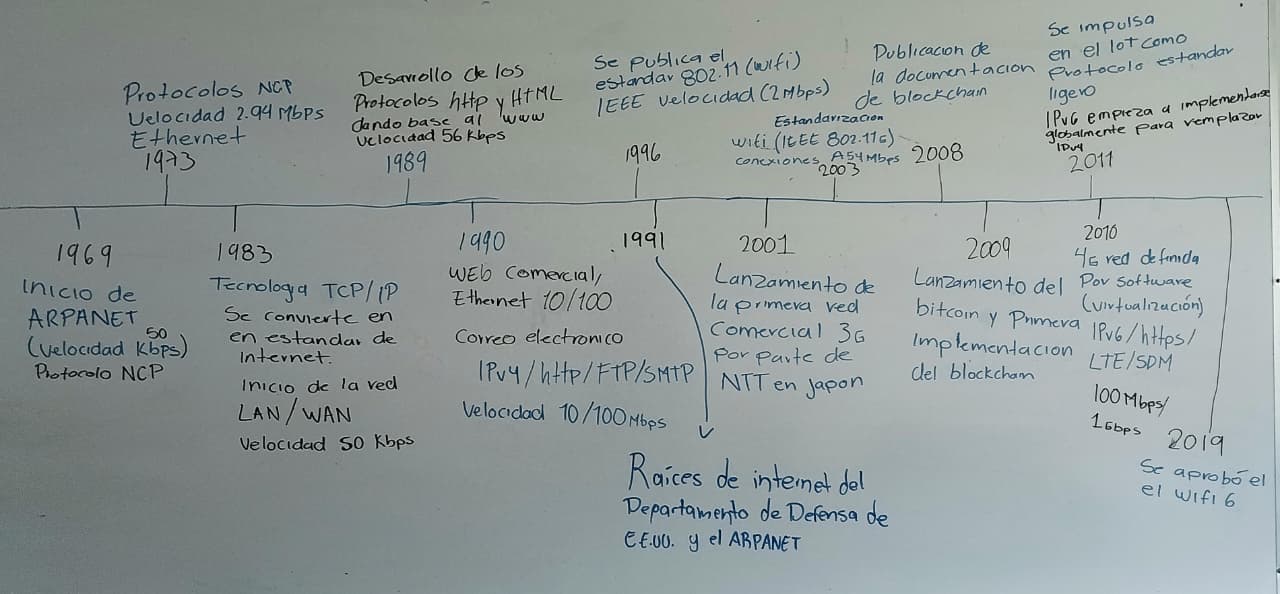 Protocolos NCP
Velocidad 2.94 Mbps
Ethernet
1973
Desarrollo de los
Protocolos http y HTML
dando base al www
velocidad 56 Kbps
1989
Se publica el
estandar 802.11 (wifi)
IEEE velocidad (2 Mbps)
1996
Estandarizacion
wifi (IEEE 802.11G)
conexiones A 54 Mbps
2003
Publicacion de
la documentacion
de blockchain
2008
Se impulsa
en el IoT como
Protocolo estandar
ligero
IPv6 empieza a implementarse
globalmente para remplazar
IPv4
2011
1969
Inicio de
ARPANET
50
(velocidad Kbps)
Protocolo NCP
1983
Tecnologia TCP/IP
Se convierte en
en estandar de
internet.
Inicio de la red
LAN/WAN
Velocidad 50 Kbps
1990
WEB Comercial/
Ethernet 10/100
Correo electronico
IPv4/http/FTP/SMTP
Velocidad 10/100 Mbps
1991
Raíces de internet del
Departamento de Defensa de
EE.UU. y el ARPANET
2001
Lanzamiento de
la primera red
Comercial 3G
por parte de
NTT en japon
2009
Lanzamiento del
bitcoin y Primera
implementacion
del blockchain
2010
4G red definida
Por software
(virtualización)
IPv6/https/
LTE/SDM
100 Mbps/
1 Gbps
2019
Se aprobó el
el wifi 6